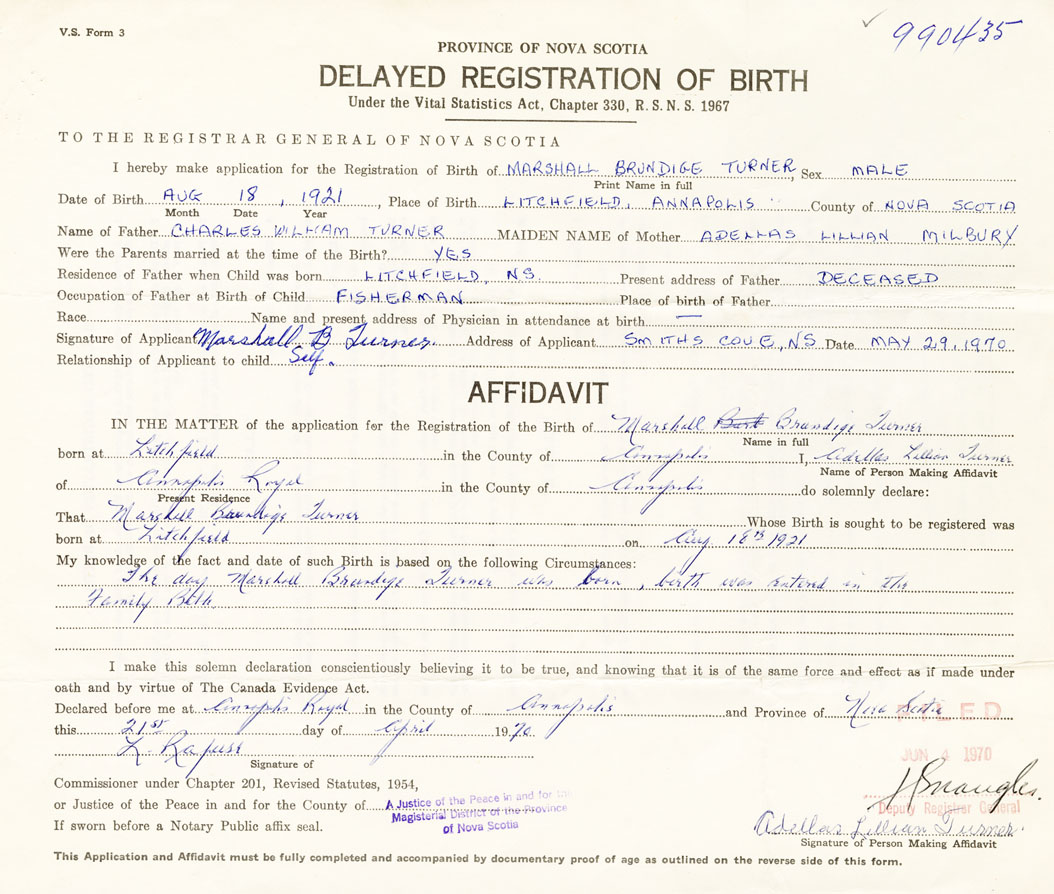 V.S. Form 3
990435
PROVINCE OF NOVA SCOTIA
DELAYED REGISTRATION OF BIRTH
Under the Vital Statistics Act, Chapter 330, R.S.N.S. 1967
TO THE REGISTRAR GENERAL OF NOVA SCOTIA
I hereby make application for the Registration of Birth of MARSHALL BRUNDIGE TURNER, Sex MALE
Print Name in full
Date of Birth AUG 18, 1921, Place of Birth LITCHFIELD, ANNAPOLIS County of NOVA SCOTIA
Month Date Year
Name of Father CHARLES WILLIAM TURNER MAIDEN NAME of Mother ADELLAS LILLIAN MILBURY
Were the Parents married at the time of the Birth? YES
Residence of Father when Child was born LITCHFIELD, NS. Present address of Father DECEASED
Occupation of Father at Birth of Child FISHERMAN Place of birth of Father
Race Name and present address of Physician in attendance at birth —
Signature of Applicant Marshall B Turner Address of Applicant SMITHS COVE, NS Date MAY 29, 1970
Relationship of Applicant to child Self.
AFFIDAVIT
IN THE MATTER of the application for the Registration of the Birth of Marshall Brundige Turner
Name in full
born at Litchfield in the County of Annapolis I, Adellas Lillian Turner
Name of Person Making Affidavit
of Annapolis Royal in the County of Annapolis do solemnly declare:
Present Residence
That Marshall Brundige Turner Whose Birth is sought to be registered was
born at Litchfield on Aug 18th 1921
My knowledge of the fact and date of such Birth is based on the following Circumstances:
The day Marshall Brundige Turner was born, birth was entered in the
Family
I make this solemn declaration conscientiously believing it to be true, and knowing that it is of the same force and effect as if made under
oath and by virtue of The Canada Evidence Act.
Declared before me at Annapolis Royal in the County of Annapolis and Province of Nova Scotia
FILED
this 21st day of April 1970.
JUN 4 1970
Signature of
Commissioner under Chapter 201, Revised Statutes, 1954,
or Justice of the Peace in and for the County of A Justice of the Peace in and for the
Magisterial District of the Province
of Nova Scotia
Deputy Registrar General
If sworn before a Notary Public affix seal.
Adellas Lillian Turner
Signature of Person Making Affidavit
This Application and Affidavit must be fully completed and accompanied by documentary proof of age as outlined on the reverse side of this form.